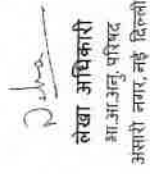 लेखा अधिकारी
भा.आ.अनु. परिषद
अंसारी नगर, नई दिल्ली